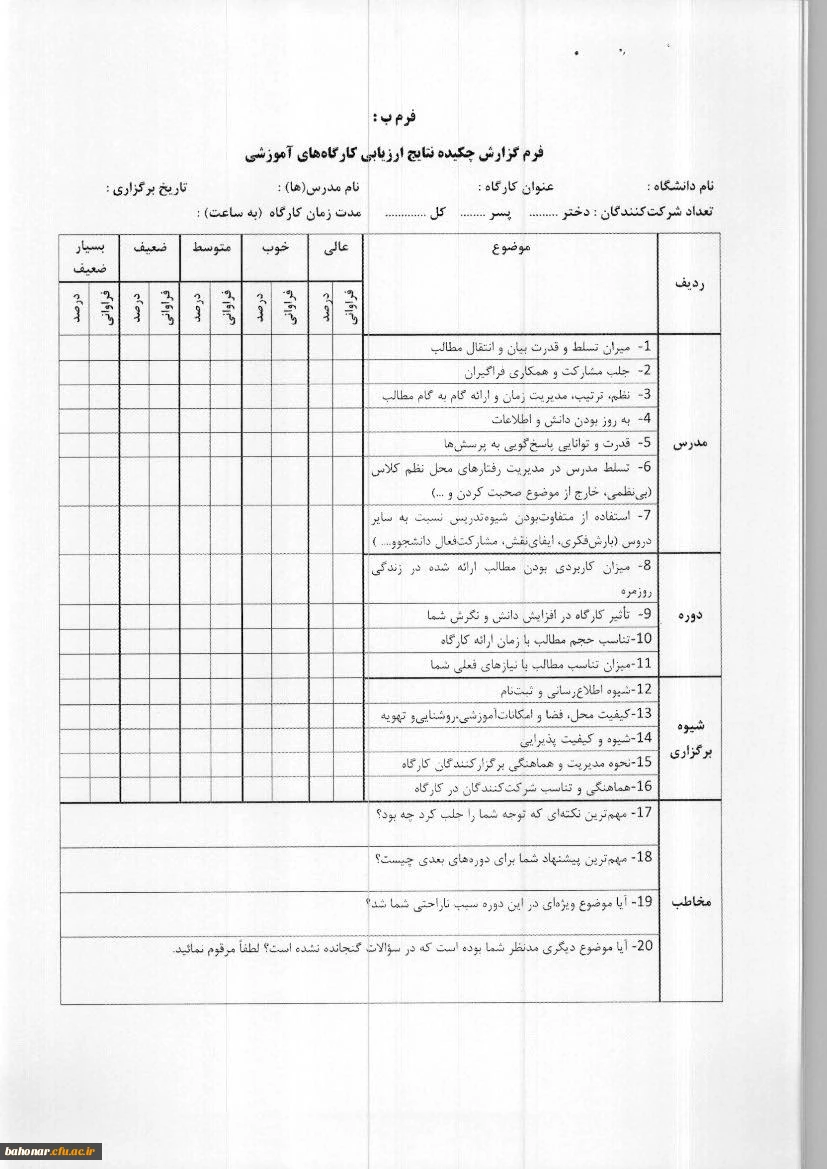 فرم ب :
فرم گزارش چکیده نتایج ارزیابی کارگاه‌های آموزشی
نام دانشگاه : عنوان کارگاه : نام مدرس(ها) : تاریخ برگزاری :
تعداد شرکت‌کنندگان : دختر ......... پسر ........ کل ............. مدت زمان کارگاه (به ساعت) :
ردیف موضوع عالی خوب متوسط ضعیف بسیار
ضعیف
فراوانی درصد فراوانی درصد فراوانی درصد فراوانی درصد فراوانی درصد
مدرس
1- میزان تسلط و قدرت بیان و انتقال مطالب
2- جلب مشارکت و همکاری فراگیران
3- نظم، ترتیب، مدیریت زمان و ارائه گام به گام مطالب
4- به روز بودن دانش و اطلاعات
5- قدرت و توانایی پاسخ‌گویی به پرسش‌ها
6- تسلط مدرس در مدیریت رفتارهای محل نظم کلاس
(بی‌نظمی، خارج از موضوع صحبت کردن و ...)
7- استفاده از متفاوت‌بودن شیوه‌تدریس نسبت به سایر
دروس (بارش‌فکری، ایفای‌نقش، مشارکت‌فعال دانشجوو.... )
دوره
8- میزان کاربردی بودن مطالب ارائه شده در زندگی
روزمره
9- تأثیر کارگاه در افزایش دانش و نگرش شما
10-تناسب حجم مطالب با زمان ارائه کارگاه
11-میزان تناسب مطالب با نیازهای فعلی شما
شیوه
برگزاری
12-شیوه اطلاع‌رسانی و ثبت‌نام
13-کیفیت محل، فضا و امکانات‌آموزشی،روشنایی‌و تهویه
14-شیوه و کیفیت پذیرایی
15-نحوه مدیریت و هماهنگی برگزارکنندگان کارگاه
16-هماهنگی و تناسب شرکت‌کنندگان در کارگاه
مخاطب
17- مهم‌ترین نکته‌ای که توجه شما را جلب کرد چه بود؟
18- مهم‌ترین پیشنهاد شما برای دوره‌های بعدی چیست؟
19- آیا موضوع ویژه‌ای در این دوره سبب ناراحتی شما شد؟
20- آیا موضوع دیگری مدنظر شما بوده است که در سؤالات گنجانده نشده است؟ لطفاً مرقوم نمائید.
bahonar.cfu.ac.ir